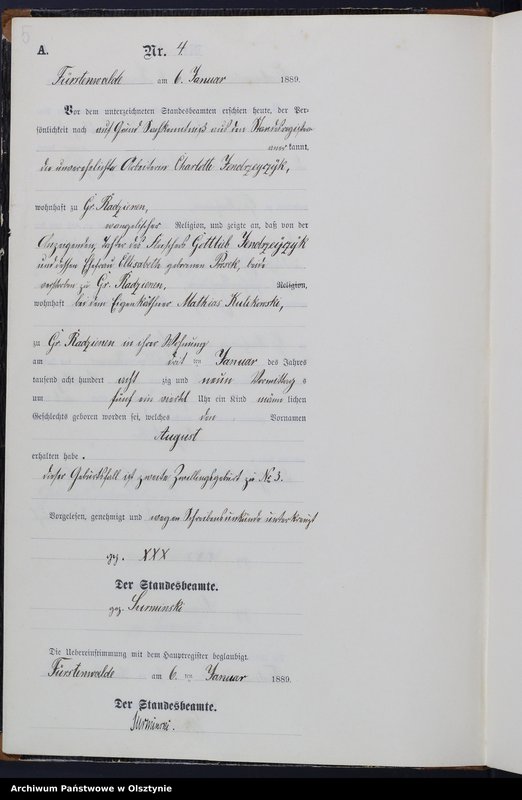 5
A.
Nr. 4
Fürstenwalde am 6. Januar 1889.
Vor dem unterzeichneten Standesbeamten erschien heute, der Per-
sönlichkeit nach auf Grund Sachkenntniß aus den Standesregistern
anerkannt,
die unverehelichte Arbeiterin Charlotte Jendrzeyczyk,
wohnhaft zu Gr. Radzienen,
evangelischer Religion, und zeigte an, daß von der
Anzeigenden, Tochter des Gottlieb Jendrzeyczyk
und dessen Ehefrau Elisabeth geborenen beide
verstorben zu Gr. Radzienen, Religion,
wohnhaft bei dem Eigenkäthner Mathias Kulikowski,
zu Gr. Radzienen in ihrer Wohnung
am ten Januar des Jahres
tausend acht hundert acht zig und neun Vormittag s
um fünf ein viertel Uhr ein Kind männ lichen
Geschlechts geboren worden sei, welches den Vornamen
August
erhalten habe.
Dieser Geburtsfall ist zweite Zwillingsgeburt zu No 3.
Vorgelesen, genehmigt und wegen Schreibensunkunde unterkreuzt
gez. XXX
Der Standesbeamte.
gez. Surminski
Die Uebereinstimmung mit dem Hauptregister beglaubigt.
Fürstenwalde am 6. ten Januar 1889.
Der Standesbeamte.
Surminski.
Archiwum Państwowe w Olsztynie